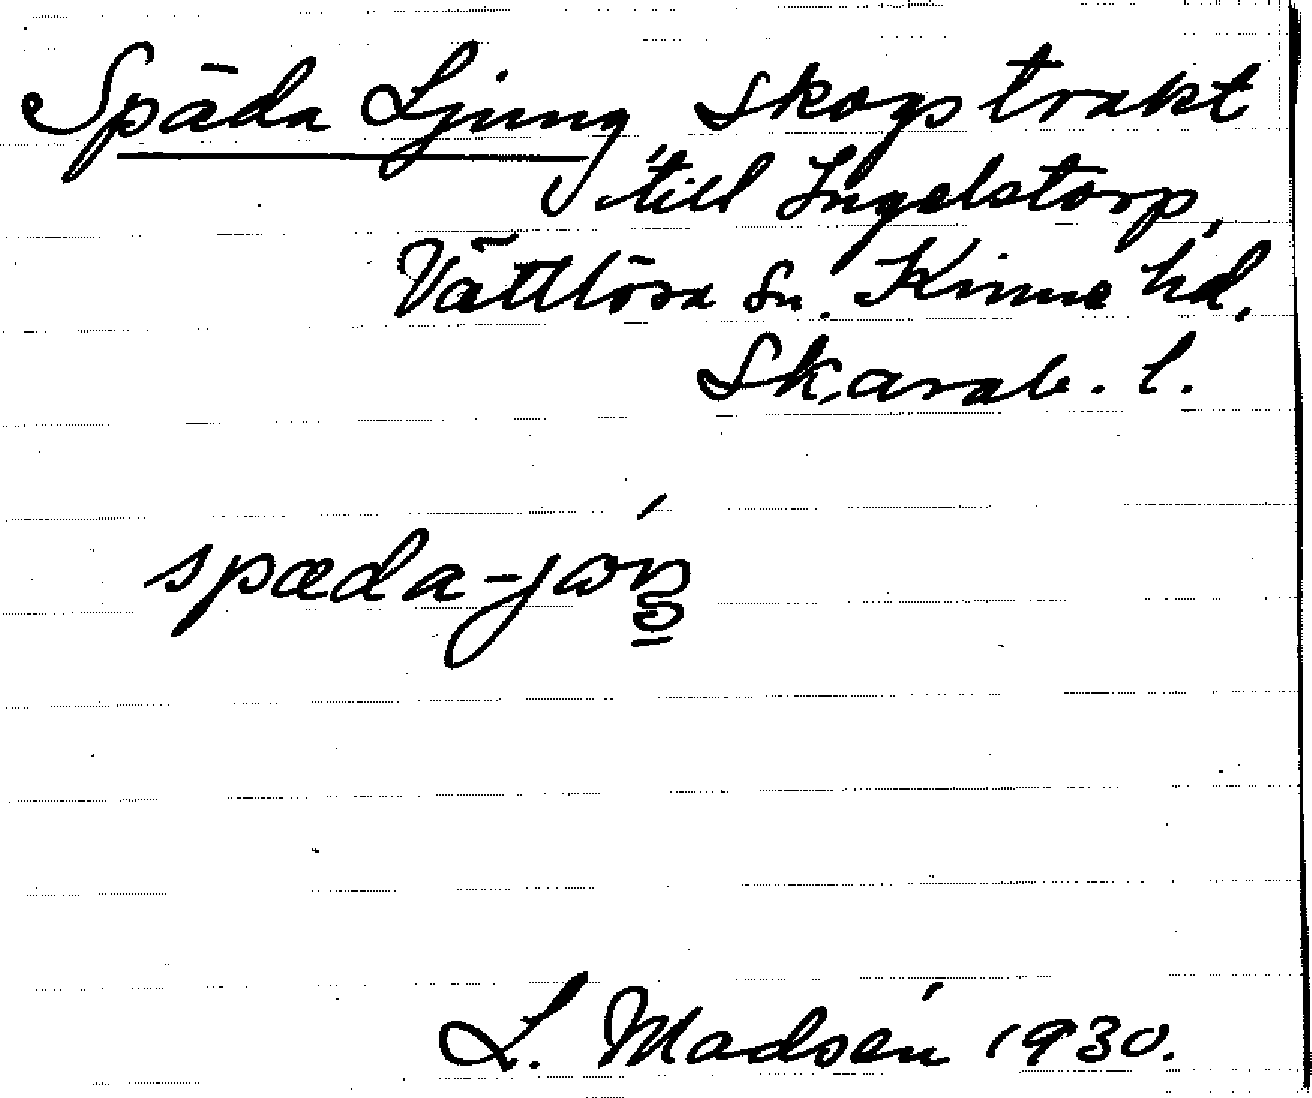 Späda Ljung, skogstrakt
till Ingelstorp,
Vättlösa sn. Kinne hd.
Skarab. l.
spæda-jɷŋ
L. Madsén 1930.